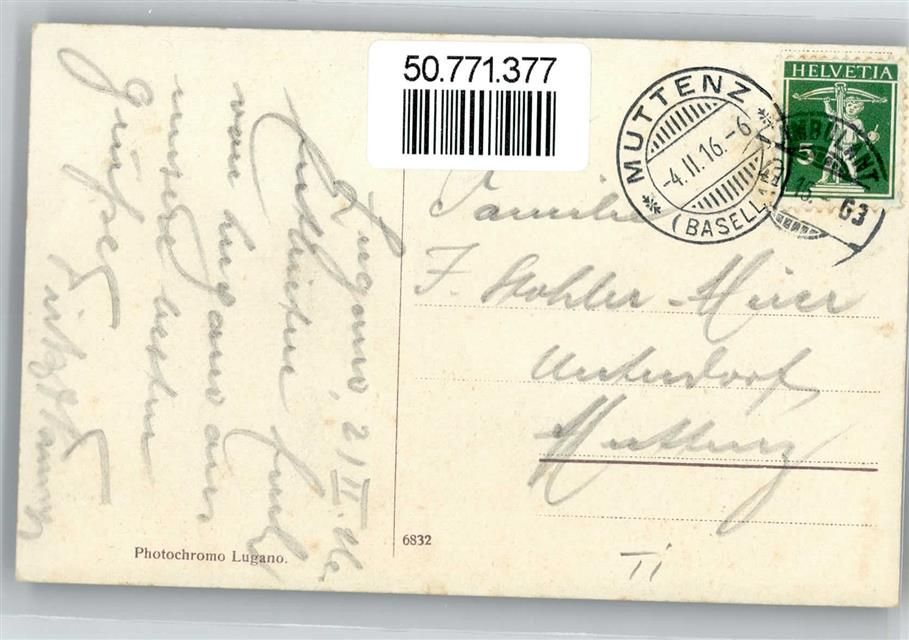 50.771.377
HELVETIA
5
MUTTENZ
-4.II.16.-6
(BASELL.
AMBULANT
63
Lugano, 2/II.
von Lugano aus
unsere besten
Grüsse
Familie
F. Stohler-Meier
Unterdorf
Muttenz
Photochromo Lugano.
6832
Ti